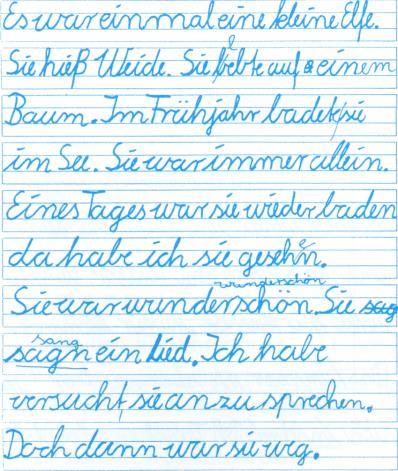 Es war einmal eine kleine Elfe.
Sie hieß Weide. Sie lebte auf einem
Baum. Im Frühjahr badet sie
im See. Sie war immer allein.
Eines Tages war sie wieder baden
da habe ich sie gesehen.
wunderschön
Sie war wunderschön. Sie sag
sang
sagn ein Lied. Ich habe
versucht, sie anzusprechen.
Doch dann war sie weg.